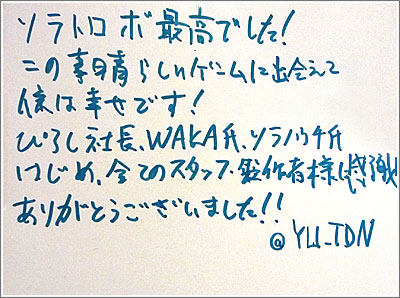 ソラトロボ最高でした!
この素晴らしいゲームに出会えて
僕は幸せです!
ひろし社長、WAKA氏、ソラノウチ氏
はじめ、全てのスタッフ・製作者様に感謝
ありがとうございました!!
@YU_TDN